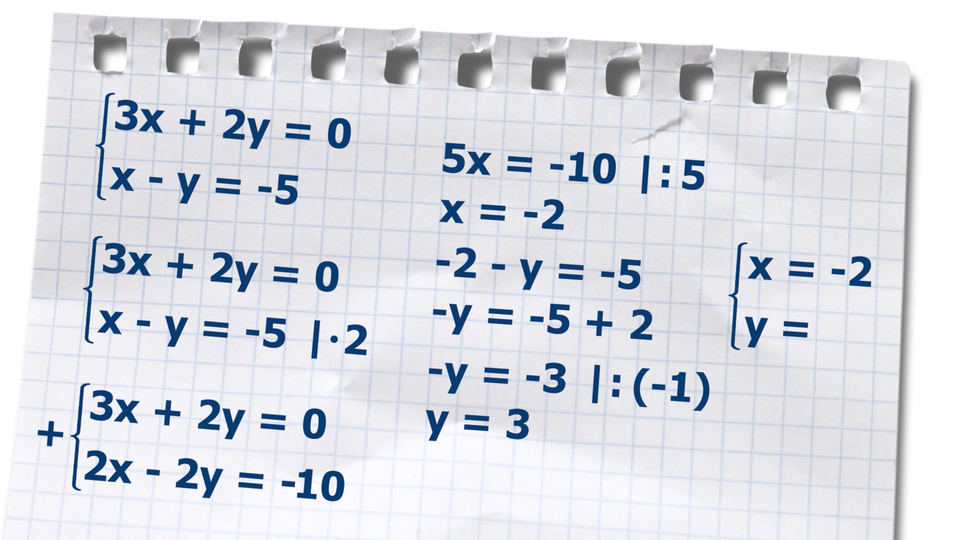 3x + 2y = 0
x - y = -5
3x + 2y = 0
x - y = -5 |·2
+
3x + 2y = 0
2x - 2y = -10
5x = -10 |:5
x = -2
-2 - y = -5
-y = -5 + 2
-y = -3 |:(-1)
y = 3
x = -2
y =